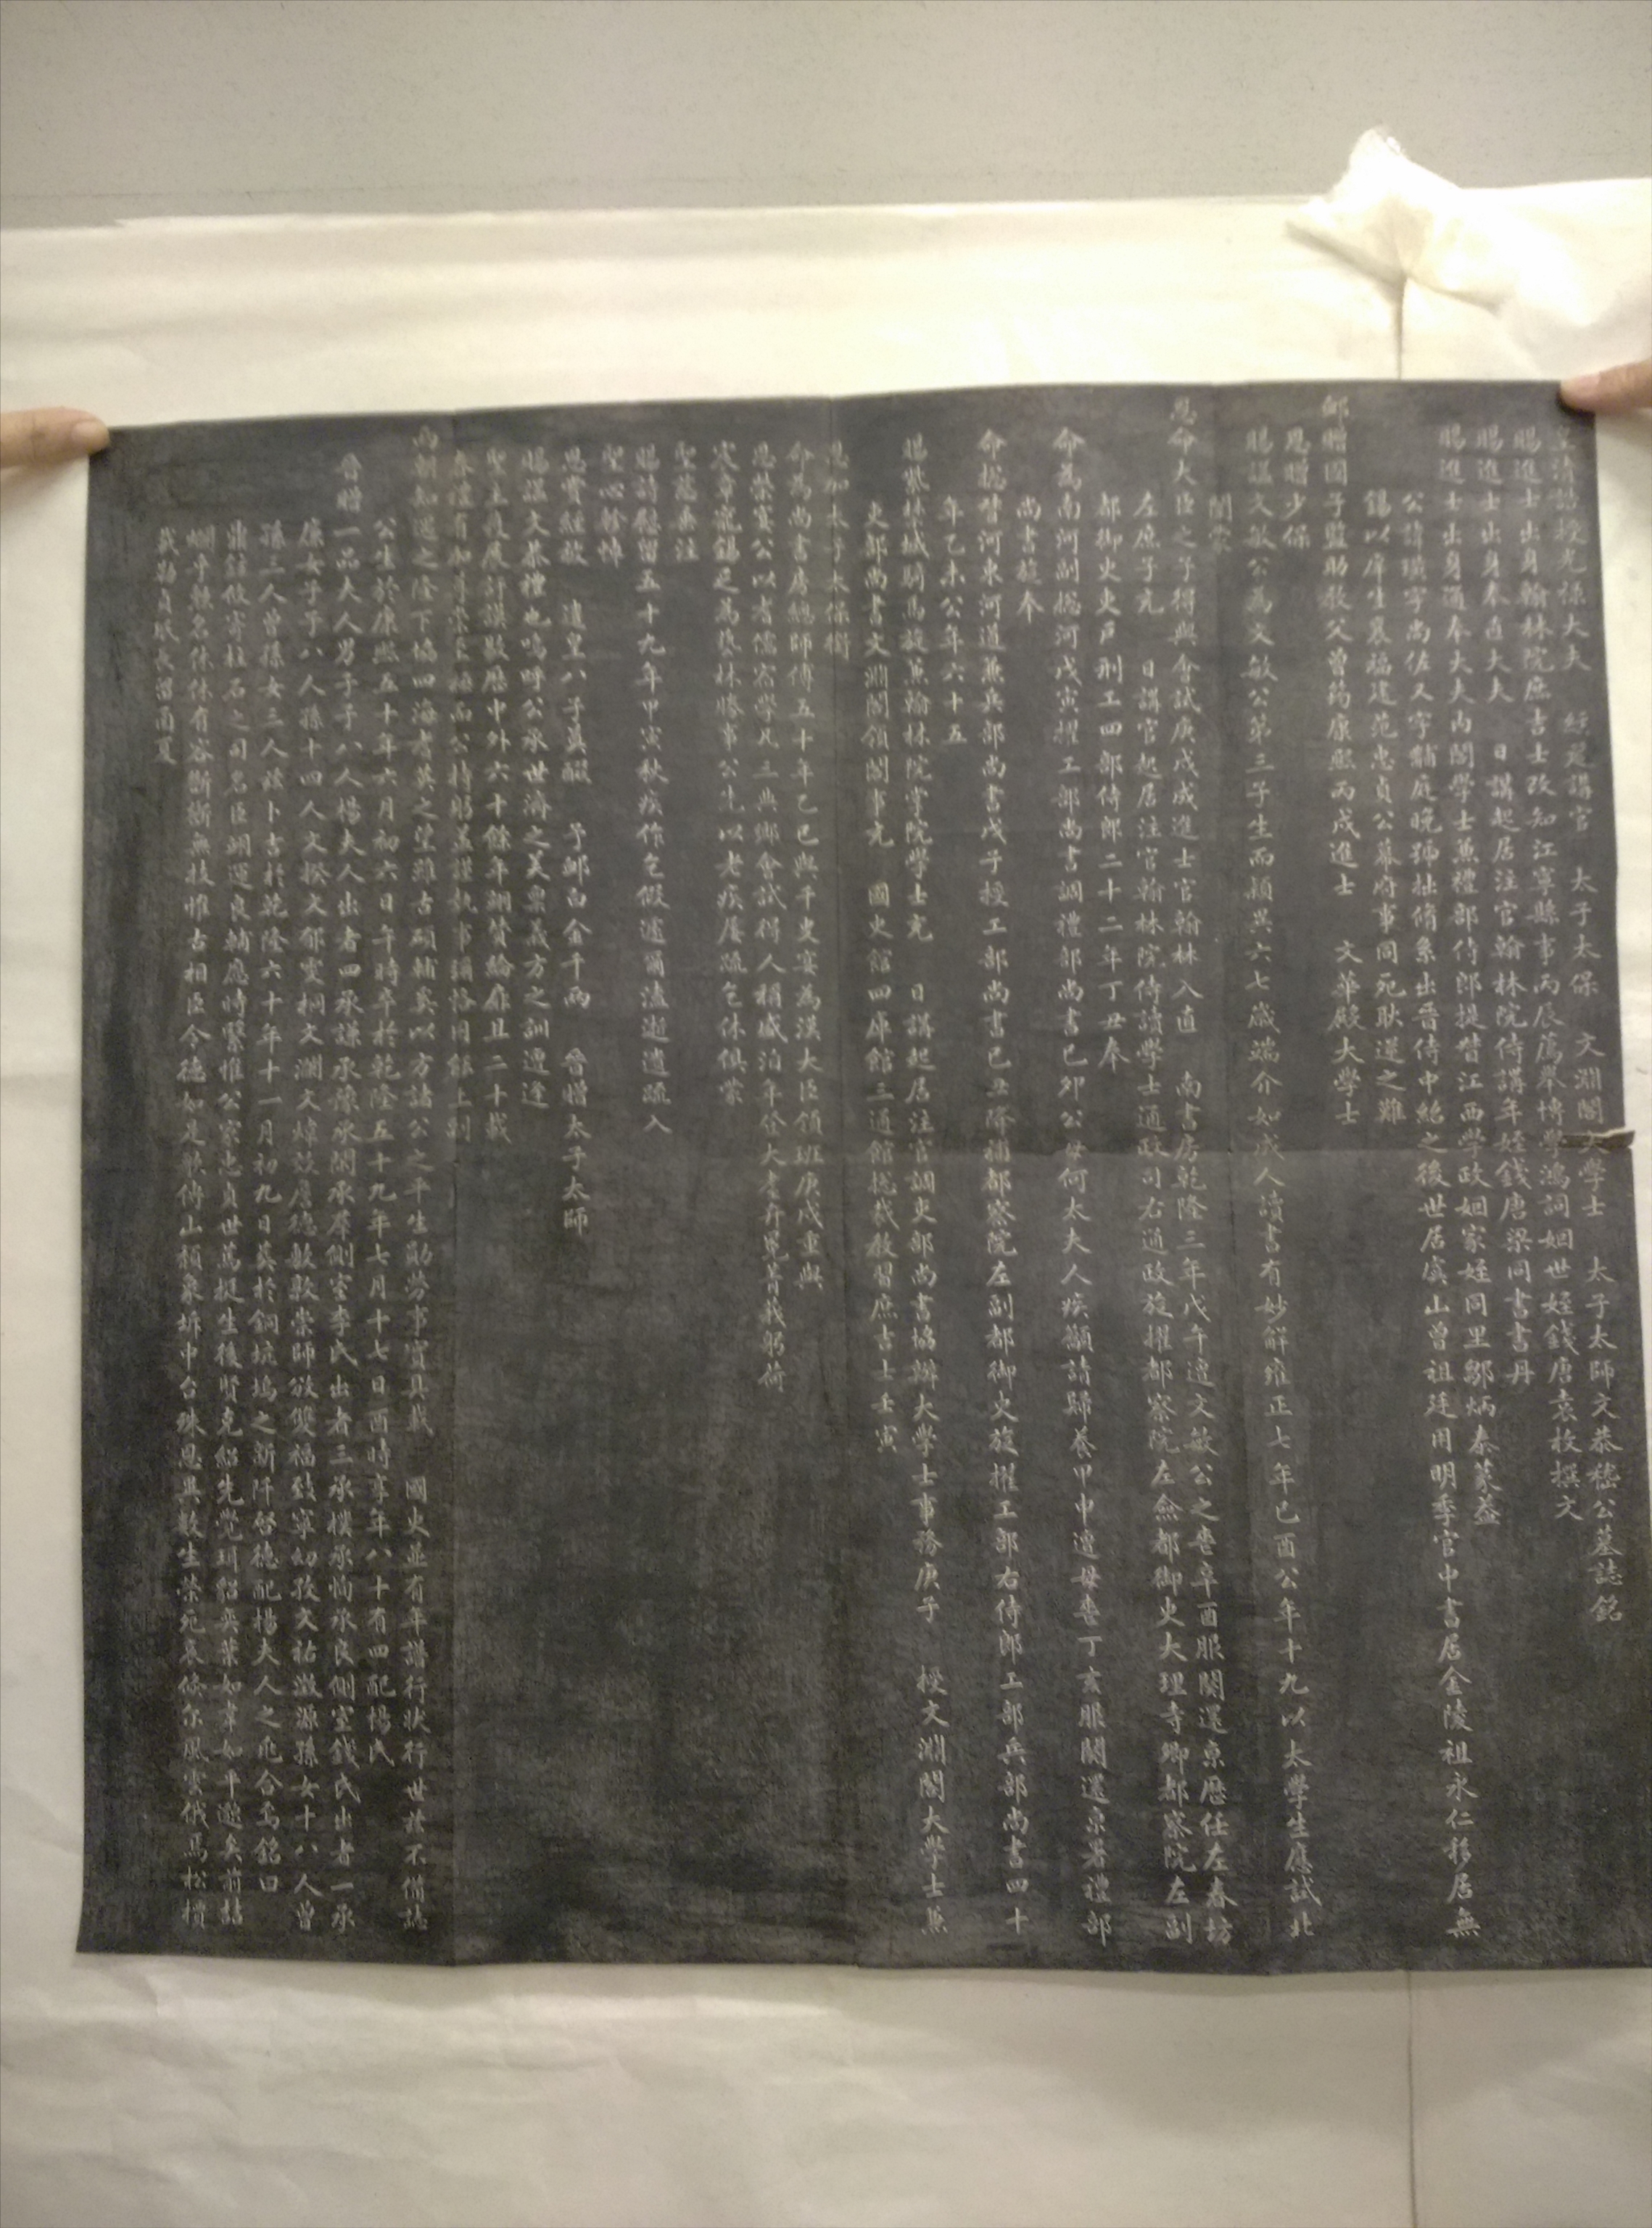 皇清誥授光祿大夫 經筵講官 太子太保 文淵閣大學士 太子太師文恭嵇公墓誌銘
賜進士出身翰林院庶吉士改知江寧縣事丙辰薦舉博學鴻詞姻世姪錢唐袁枚撰文
賜進士出身奉直大夫 日講起居注官翰林院侍講年姪錢唐梁同書書丹
賜進士出身通奉大夫內閣學士兼禮部侍郎提督江西學政姻家姪同里鄒炳泰篆蓋
公諱璜字尚佐又字黼庭晚號拙脩系出晉侍中紹之後世居虞山曾祖廷用明季官中書居金陵祖永仁移居無
錫以庠生募福建范忠貞公幕府事同死耿逆之難
卹贈國子監助教父曾筠康熙丙戌進士 文華殿大學士
恩贈少保
賜謚文敏公為文敏公第三子生而穎異六七歲端介如成人讀書有妙解雍正七年己酉公年十九以太學生應試北
闈蒙
恩命大臣之子得與會試庚戌成進士官翰林入直 南書房乾隆三年戊午遭文敏公之喪辛酉服闋還京歷任左春坊
左庶子充 日講官起居注官翰林院侍讀學士通政司右通政旋擢都察院左僉都御史大理寺卿都察院左副
都御史吏戶刑工四部侍郎二十二年丁丑奉
命為南河副總河戊寅擢工部尚書調禮部尚書己卯公母何太夫人疾籲請歸養甲申遭母喪丁亥服闋還京署禮部
尚書旋奉
命總督河東河道兼兵部尚書戊子授工部尚書己丑降補都察院左副都御史旋擢工部右侍郎工部兵部尚書四十
年乙未公年六十五
賜紫禁城騎馬旋兼翰林院掌院學士充 日講起居注官調吏部尚書協辦大學士事務庚子 授文淵閣大學士兼
吏部尚書文淵閣領閣事充 國史館四庫館三通館總裁教習庶吉士壬寅
恩加太子太保銜
命為尚書房總師傅五十年乙巳與千叟宴為漢大臣領班庚戌重與
恩榮宴公以耆儒宿學凡三典鄉會試得人稱盛洎年登大耋弁冕菁莪躬荷
宸章寵錫足為藝林勝事公先以老疾屢疏乞休俱蒙
聖慈垂注
賜詩慰留五十九年甲寅秋疾作乞假遽爾溘逝遺疏入
聖心軫悼
恩賚經被 遣皇八子奠醊 予卹白金千兩 晉贈太子太師
賜謚文恭禮也嗚呼公承世濟之美稟義方之訓遭逢
聖主宣展訏謨歷中外六十餘年翊贊綸扉且二十載
春禮有加
兩朝知遇之隆下協四海耆英之望雖古碩輔莫以方諸公之平生勛勞事實具載 國史並有年譜行狀行世茲不備誌
公生於康熙五十年六月初六日午時卒於乾隆五十九年七月十七日酉時享年八十有四配楊氏
晉贈一品夫人男子子八人楊夫人出者四承謙承豫承閑承群側室李氏出者三承樸承恂承良側室錢氏出者一承
孫三人曾孫女三人茲卜吉於乾隆六十年十一月初九日葬於銅坑塢之新阡啟德配楊夫人之兆合焉銘曰